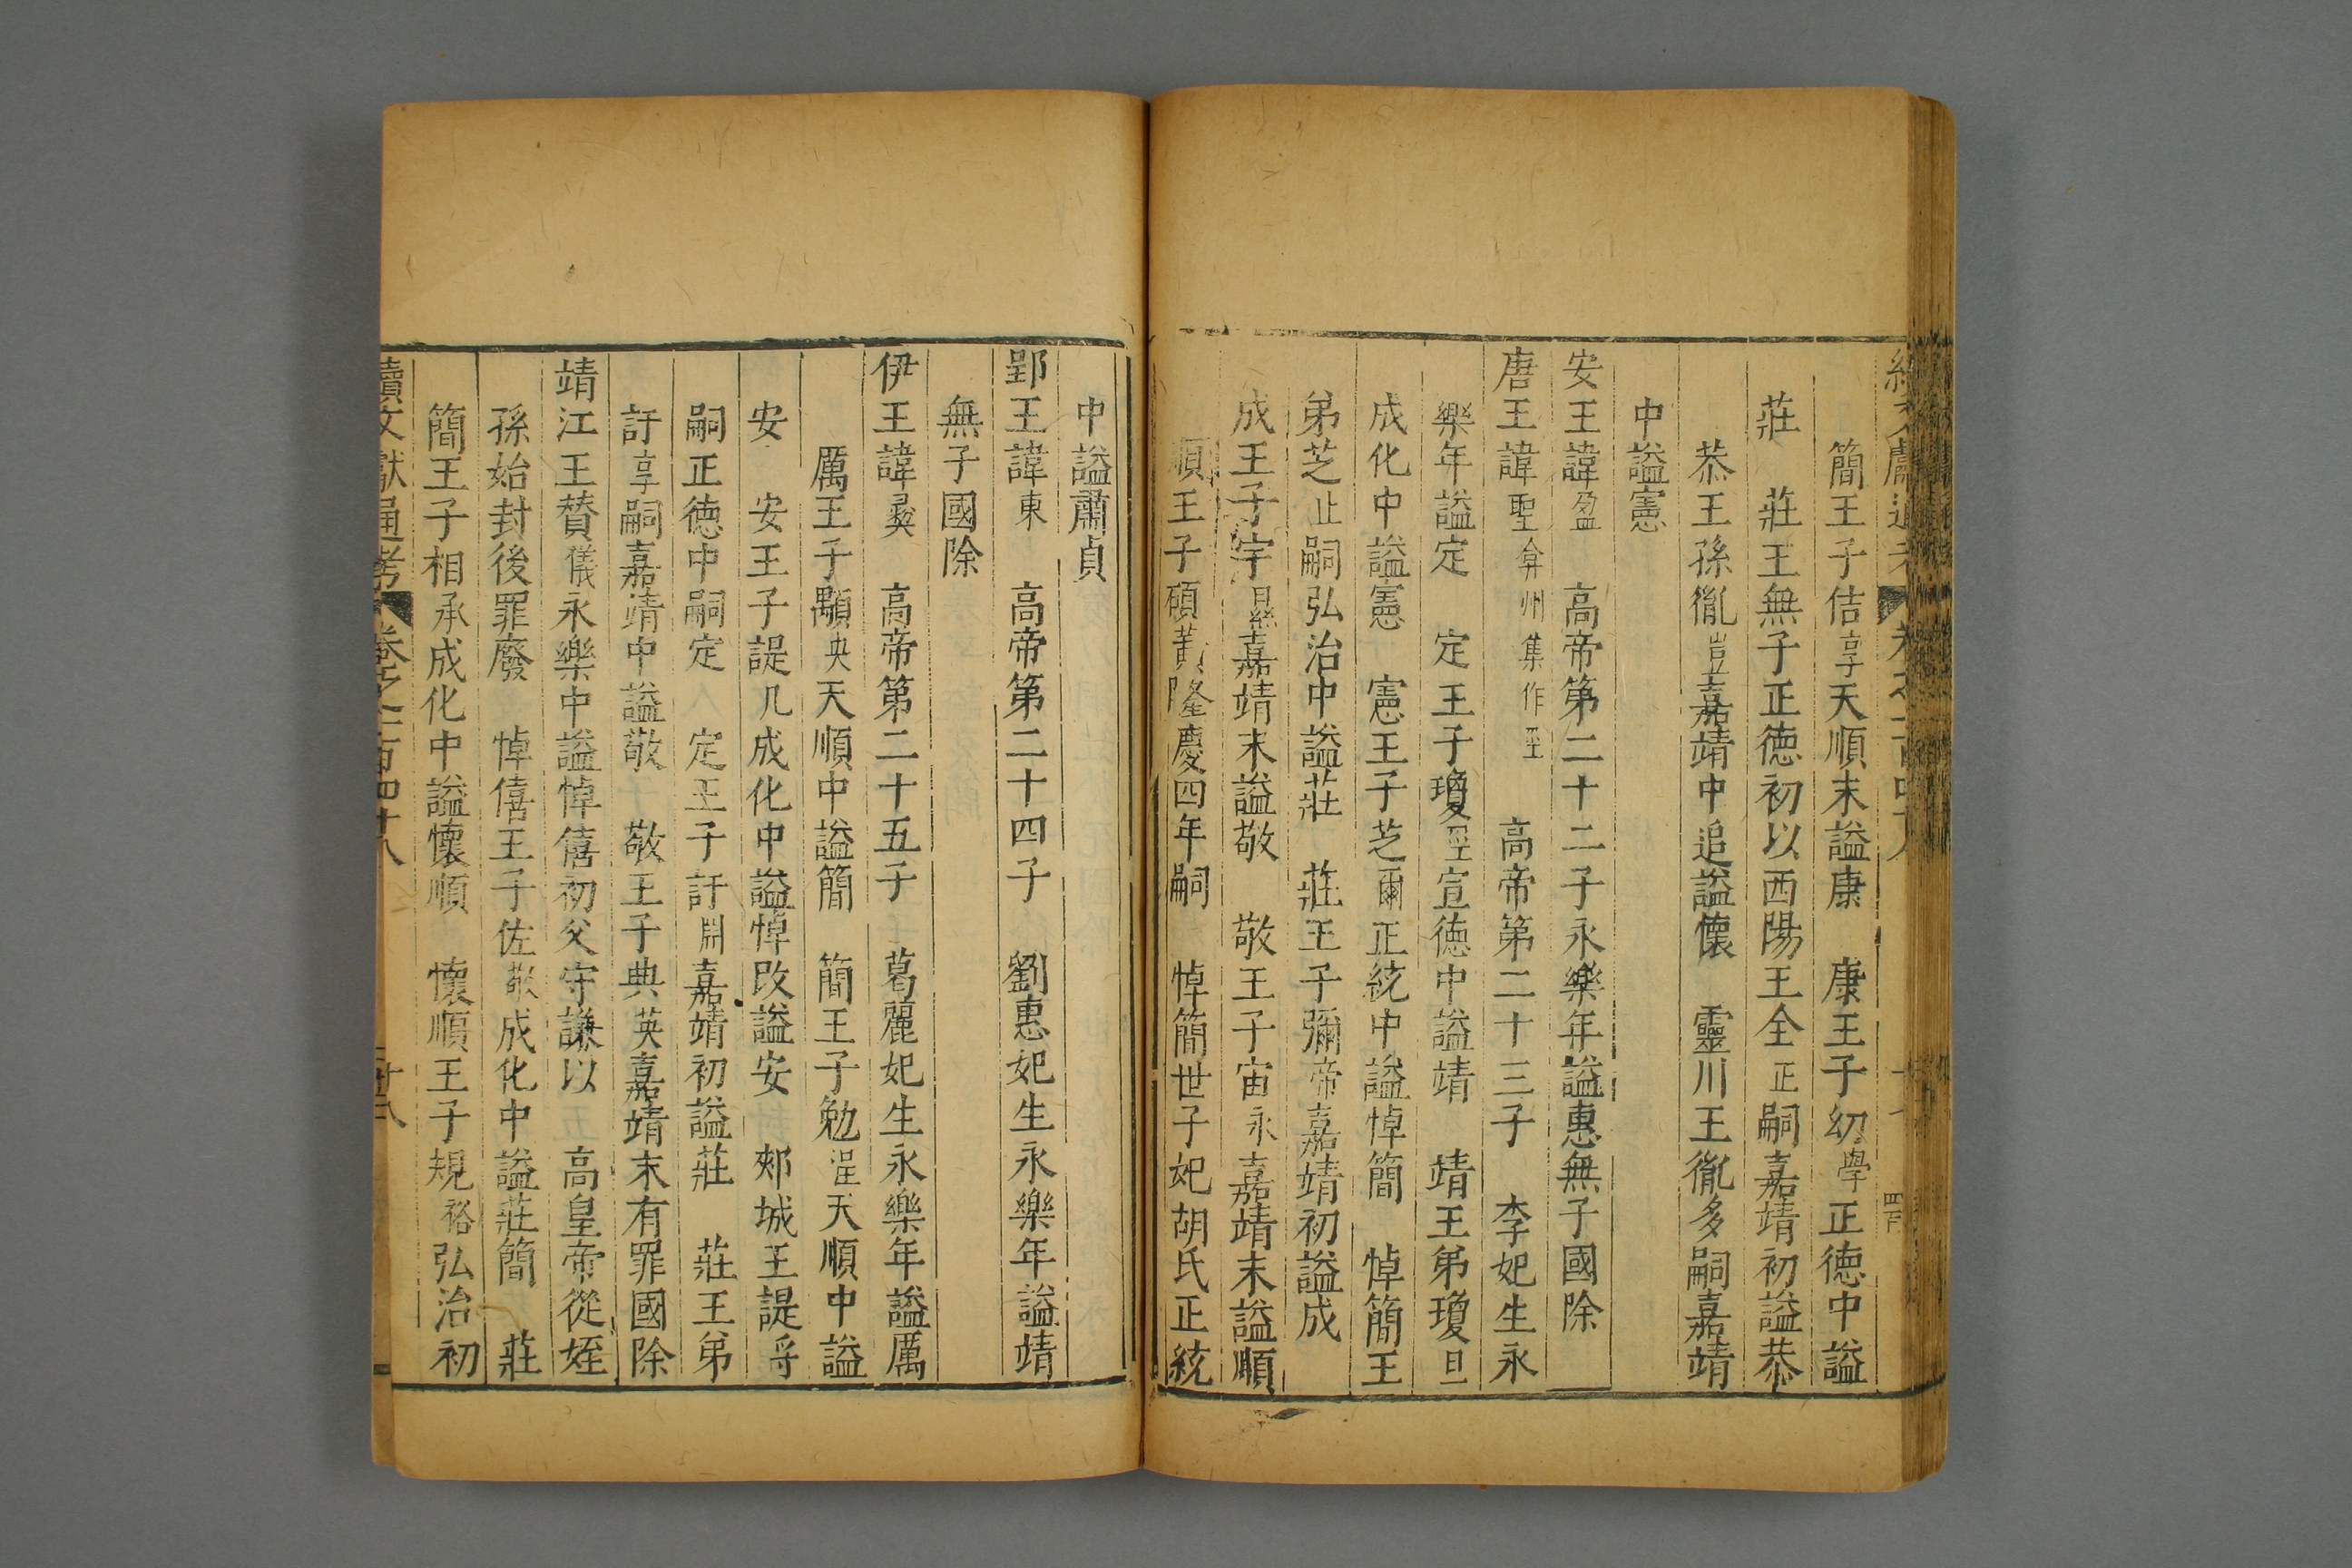 簡王子佶享天順末謚康　康王子幼學正德中謚
莊　莊王無子正德初以西陽王全正嗣嘉靖初謚恭
恭王孫胤豈嘉靖中追謚懷　靈川王胤多嗣嘉靖
中謚憲
安王諱盈　高帝第二十二子永樂年謚惠無子國除
唐王諱聖弇州集作　高帝第二十三子　李妃生永
樂年謚定　定王子瓊烴宣德中謚靖　靖王弟瓊旦
成化中謚憲　憲王子芝爾正統中謚悼簡　悼簡王
弟芝止嗣弘治中謚莊　莊王子彌帝嘉靖初謚成
成王子宇嘉靖末謚敬　敬王子宙永嘉靖末謚順
順王子碩黃隆慶四年嗣　悼簡世子妃胡氏正統
中謚肅貞
郢王諱東　高帝第二十四子　劉惠妃生永樂年謚靖
無子國除
伊王諱彝　高帝第二十五子　葛麗妃生永樂年謚厲
厲王子顒央天順中謚簡　簡王子勉浧天順中謚
安　安王子諟几成化中謚悼改謚安　郟城王諟孚
嗣正德中嗣定　定王子訏淵嘉靖初謚莊　莊王弟
訏享嗣嘉靖中謚敬　敬王子典英嘉靖末有罪國除
靖江王贊儀永樂中謚悼僖初父守謙以　高皇帝從姪
孫始封後罪廢　悼僖王子佐敬成化中謚莊簡　莊
簡王子相承成化中謚懷順　懷順王子規裕弘治初
續文獻通考　卷之二百四十八　廿八